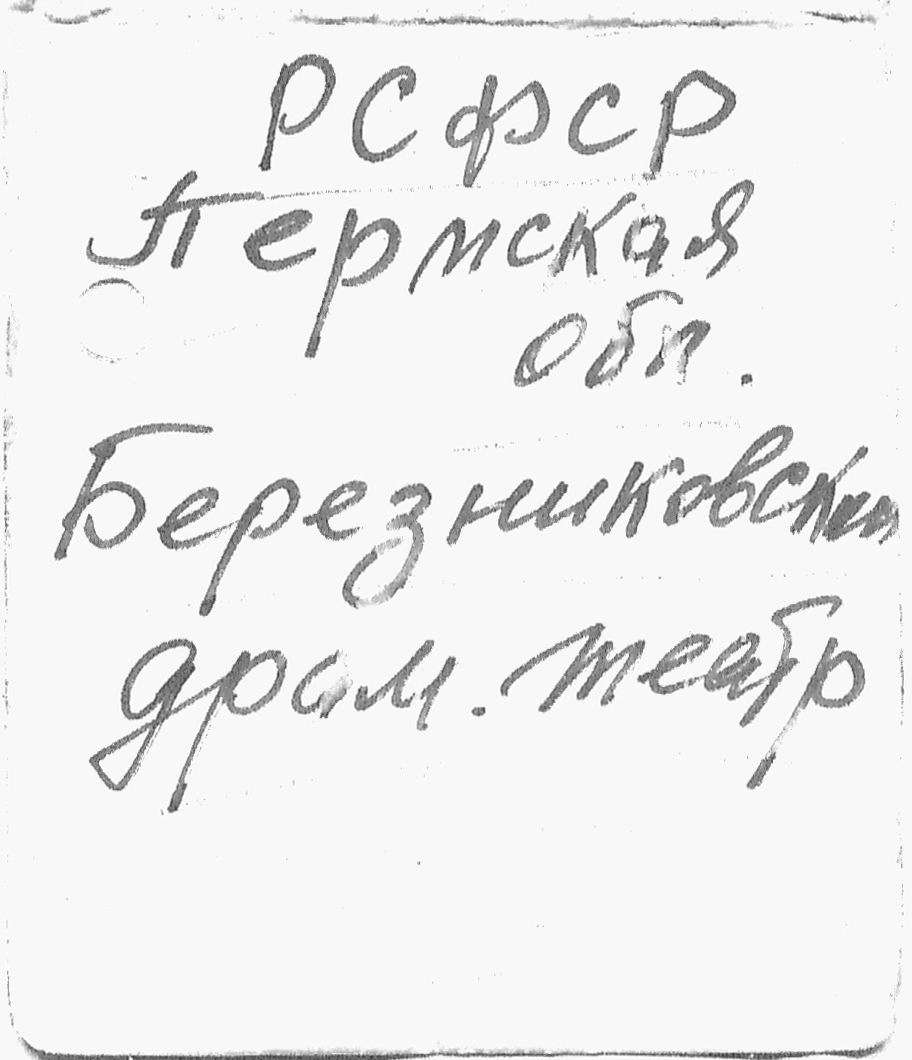 РСФСР
Пермская
обл.
Березниковский
драм. театр